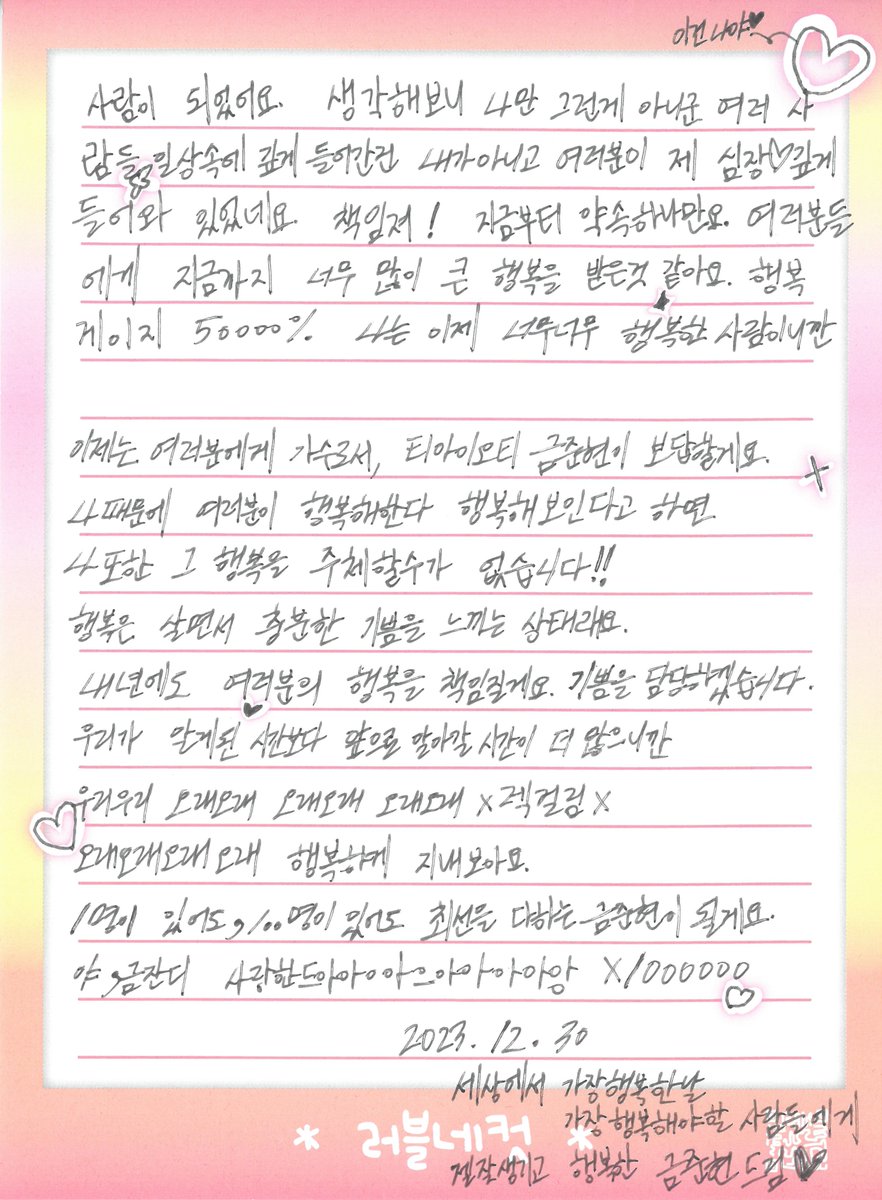 이건 나야♥
사람이 되었어요. 생각해보니 나만 그런게 아니군 여러 사
람들 일상속에 깊게 들어간건 내가아니고 여러분이 제 심장♡깊게
들어와 있었네요. 책임져! 지금부터 약속하나만요. 여러분들
에게 지금까지 너무 많이 큰 행복을 받은것 같아요. 행복
게이지 50000% 나는 이제 너무너무 행복한 사람이니깐
이제는 여러분에게 가수로서, 티아이오티 금준현이 보답할게요.
나 때문에 여러분이 행복해한다 행복해보인다고 하면
나 또한 그 행복을 주체할수가 없습니다!!
행복은 살면서 충분한 기쁨을 느끼는 상태래요.
내년에도 여러분의 행복을 책임질게요. 기쁨을 담당하겠습니다.
우리가 알게된 시간보다 앞으로 알아갈 시간이 더 많으니깐
우리우리 오래오래 오래오래 오래오래 x렉걸림x
오래오래오래오래 행복하게 지내보아요.
1명이 있어도, 100명이 있어도 최선을 다하는 금준현이 될게요.
야, 금잔디 사랑한드아아아아으아아아아앙 X1000000
2023. 12. 30
세상에서 가장행복한날
가장행복해야할 사람들에게
* 러블네컷 *
젤잘생기고 행복한 금준현 드림♥